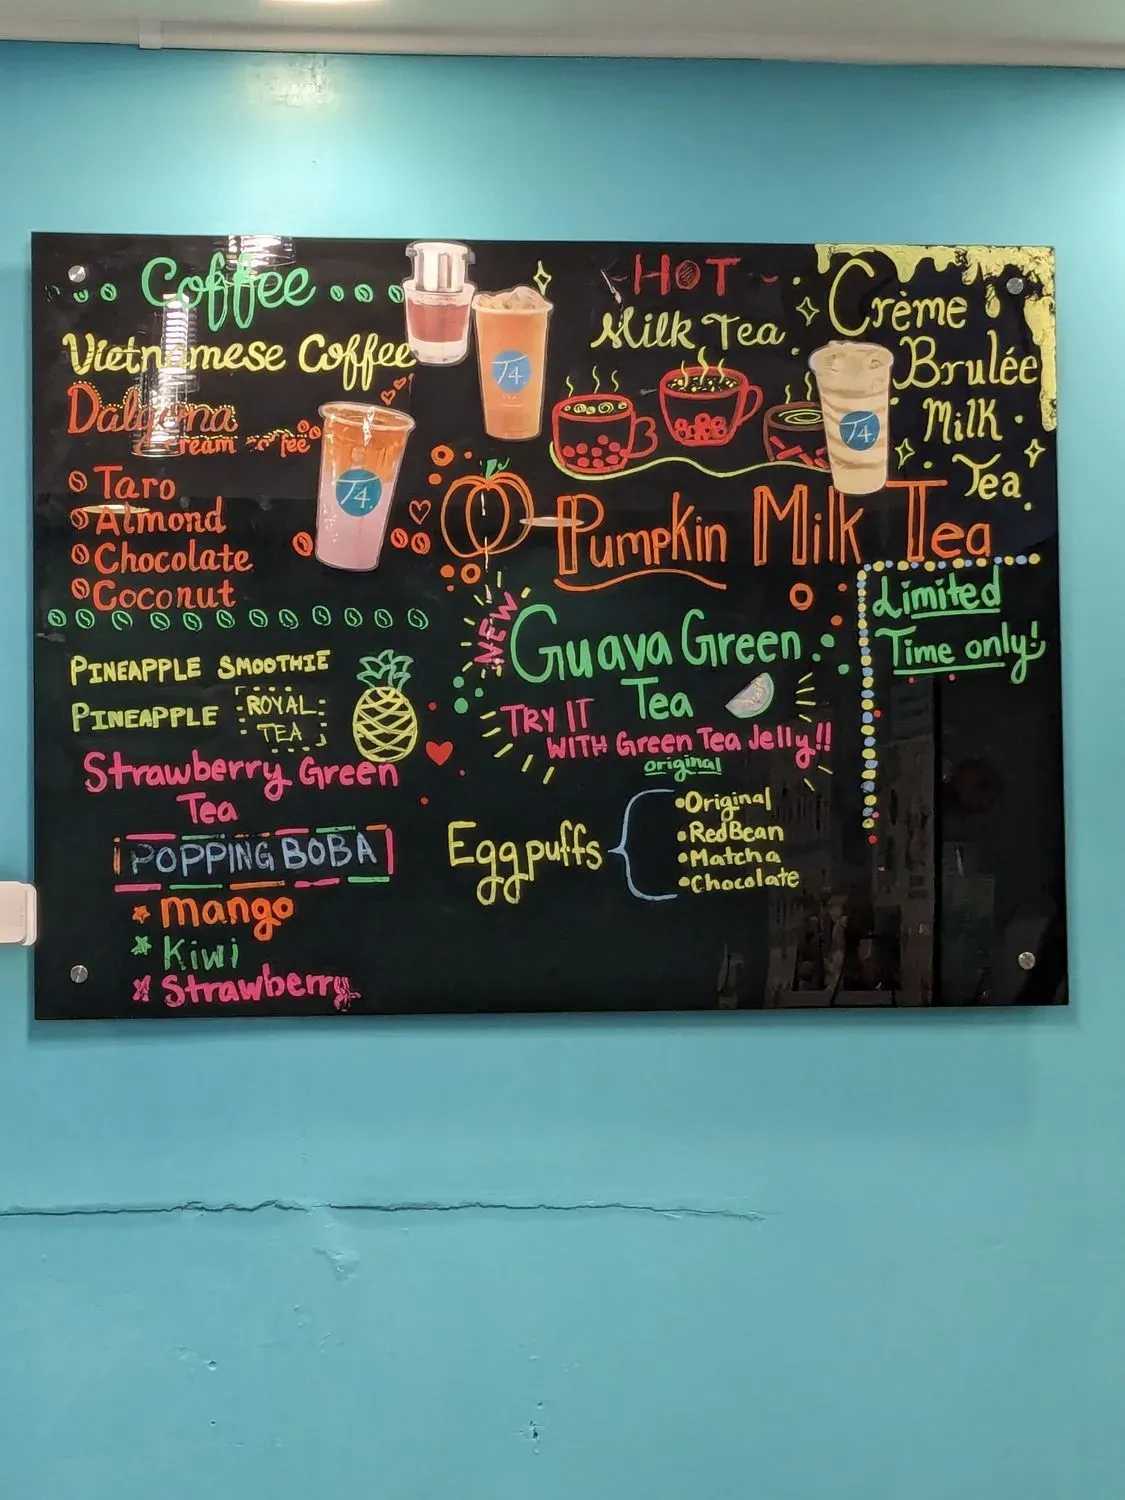 Coffee
Vietnamese Coffee
Dalgona
Cream Coffee
Taro
Almond
Chocolate
Coconut
PINEAPPLE SMOOTHIE
PINEAPPLE ROYAL
TEA
Strawberry Green
Tea
POPPING BOBA
mango
Kiwi
Strawberry
T4.
T4.
HOT
Milk Tea
T4.
Crème
Brulée
Milk
Tea
Pumpkin Milk Tea
Limited
Time only!
NEW
Guava Green
Tea
TRY IT
WITH Green Tea Jelly!!
original
Eggpuffs
Original
RedBean
Matcha
Chocolate